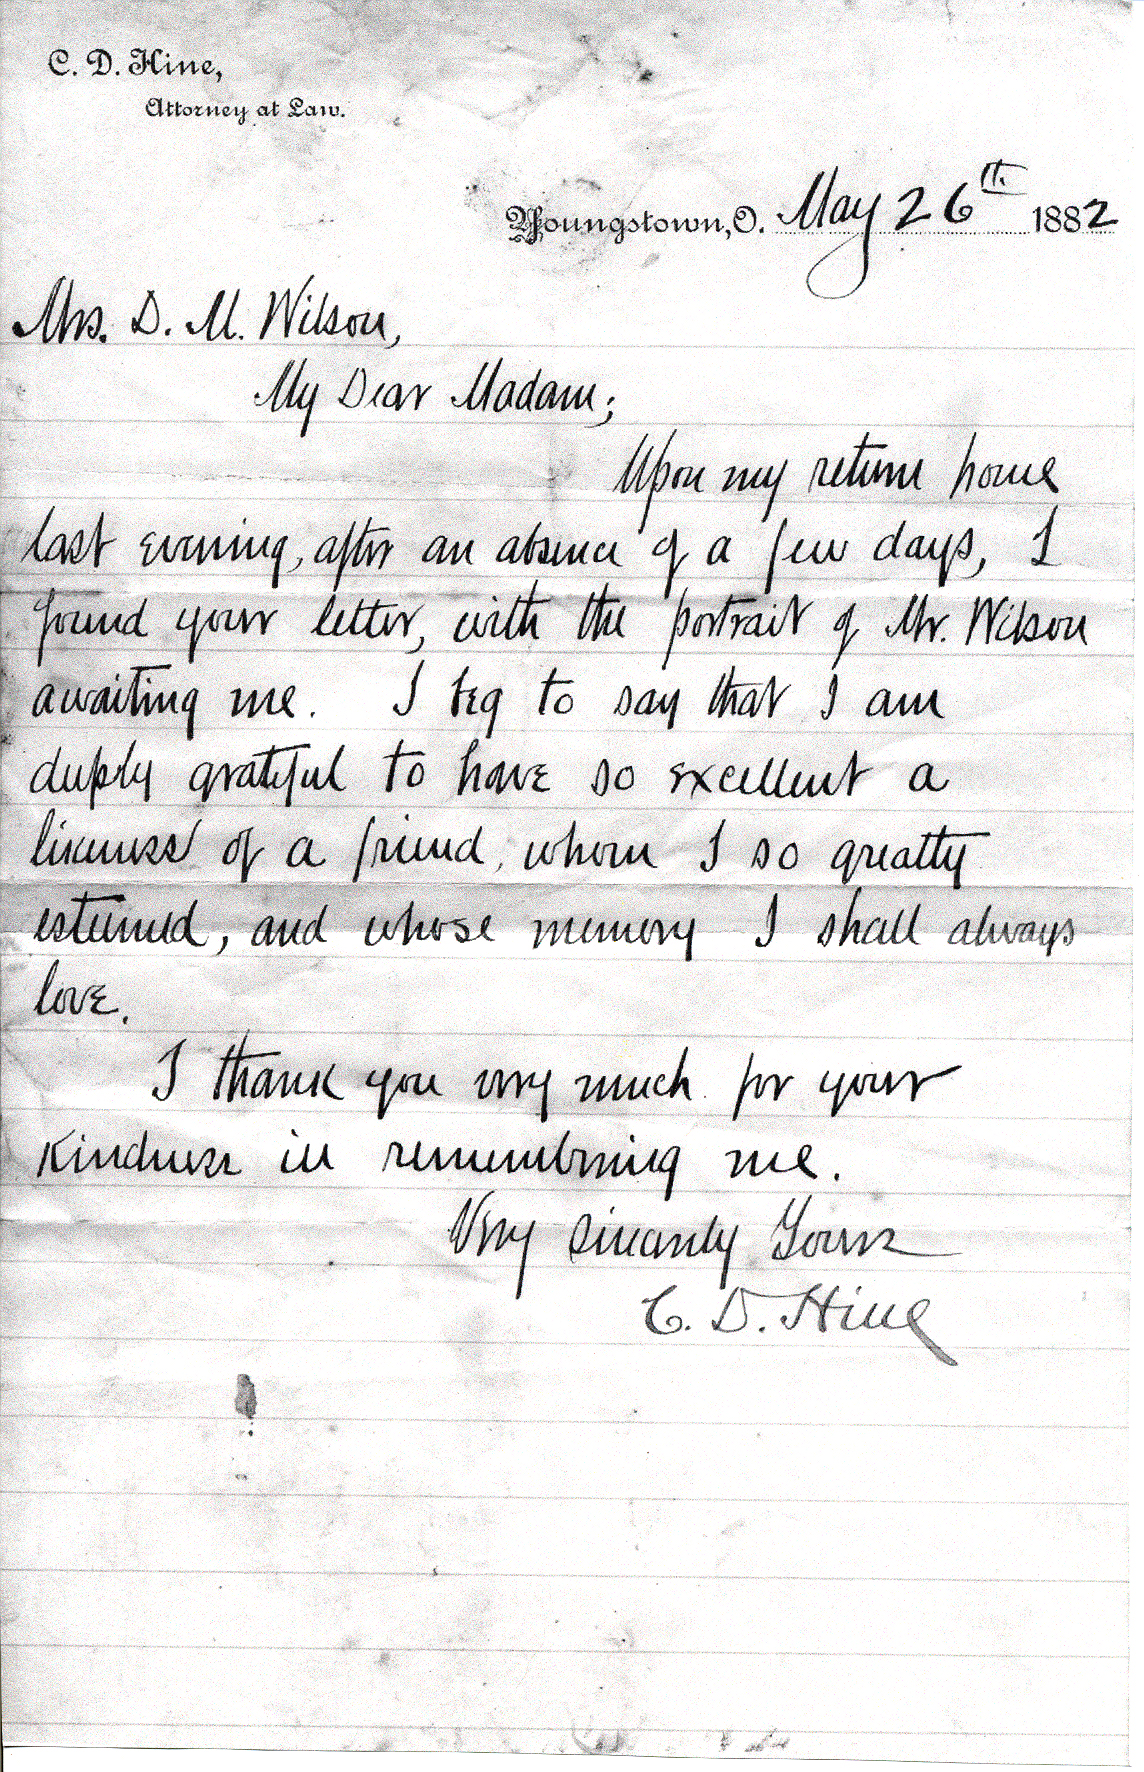 C. D. Hine,
Attorney at Law.
Youngstown, O. May 26th 1882
Mrs. D. M. Wilson,
My Dear Madam;
Upon my return home
last evening, after an absence of a few days, I
found your letter, with the portrait of Mr. Wilson
awaiting me. I beg to say that I am
deeply grateful to have so excellent a
likeness of a friend, whom I so greatly
esteemed, and whose memory I shall always
love.
I thank you very much for your
kindness in remembering me.
Very Sincerely Yours
C. D. Hine